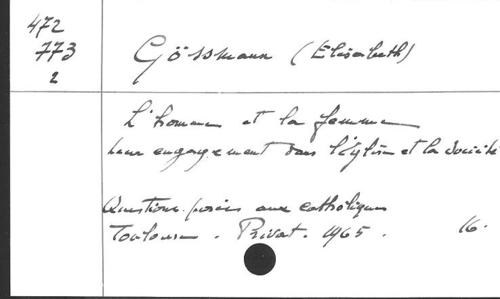 472
773
2
Gössmann (Elisabeth)
L'homme et la femme
leur engagement dans l'Église et la société
Questions posées aux catholiques
Toulouse. Privat. 1965. 16.